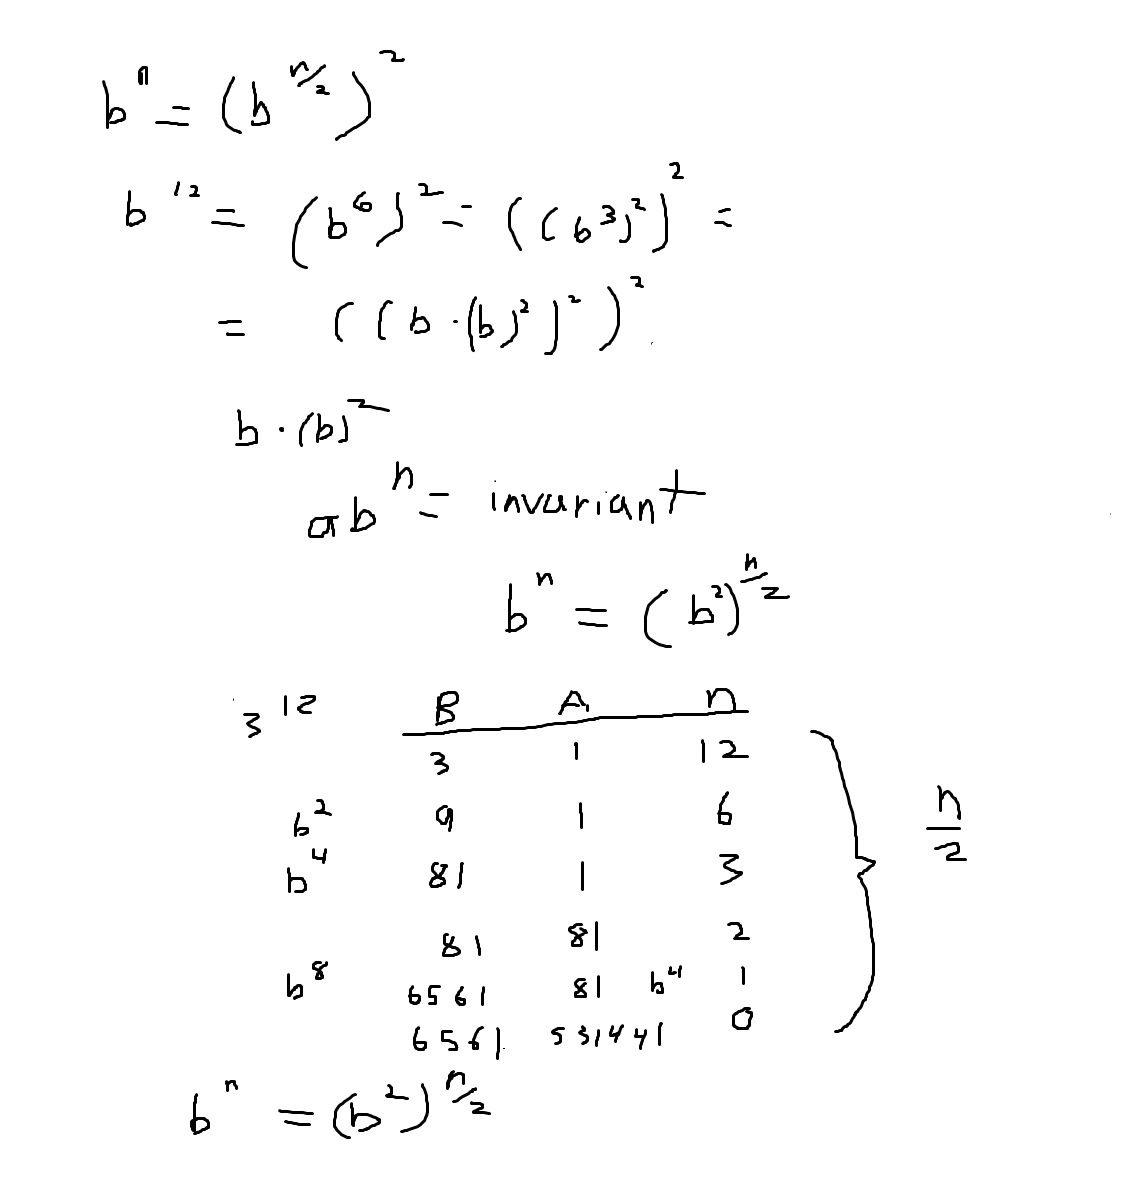 bⁿ = (b^(n/2))²
b¹² = (b⁶)² = ((b³)²)² =
= ((b·(b)²)²)²
b·(b)²
abⁿ = invariant
bⁿ = (b²)^(n/2)
3¹² B A n
3 1 12
b² 9 1 6
b⁴ 81 1 3
n/2
81 81 2
b⁸ 6561 81 b⁴ 1
6561 531441 0
bⁿ = (b²)^(n/2)